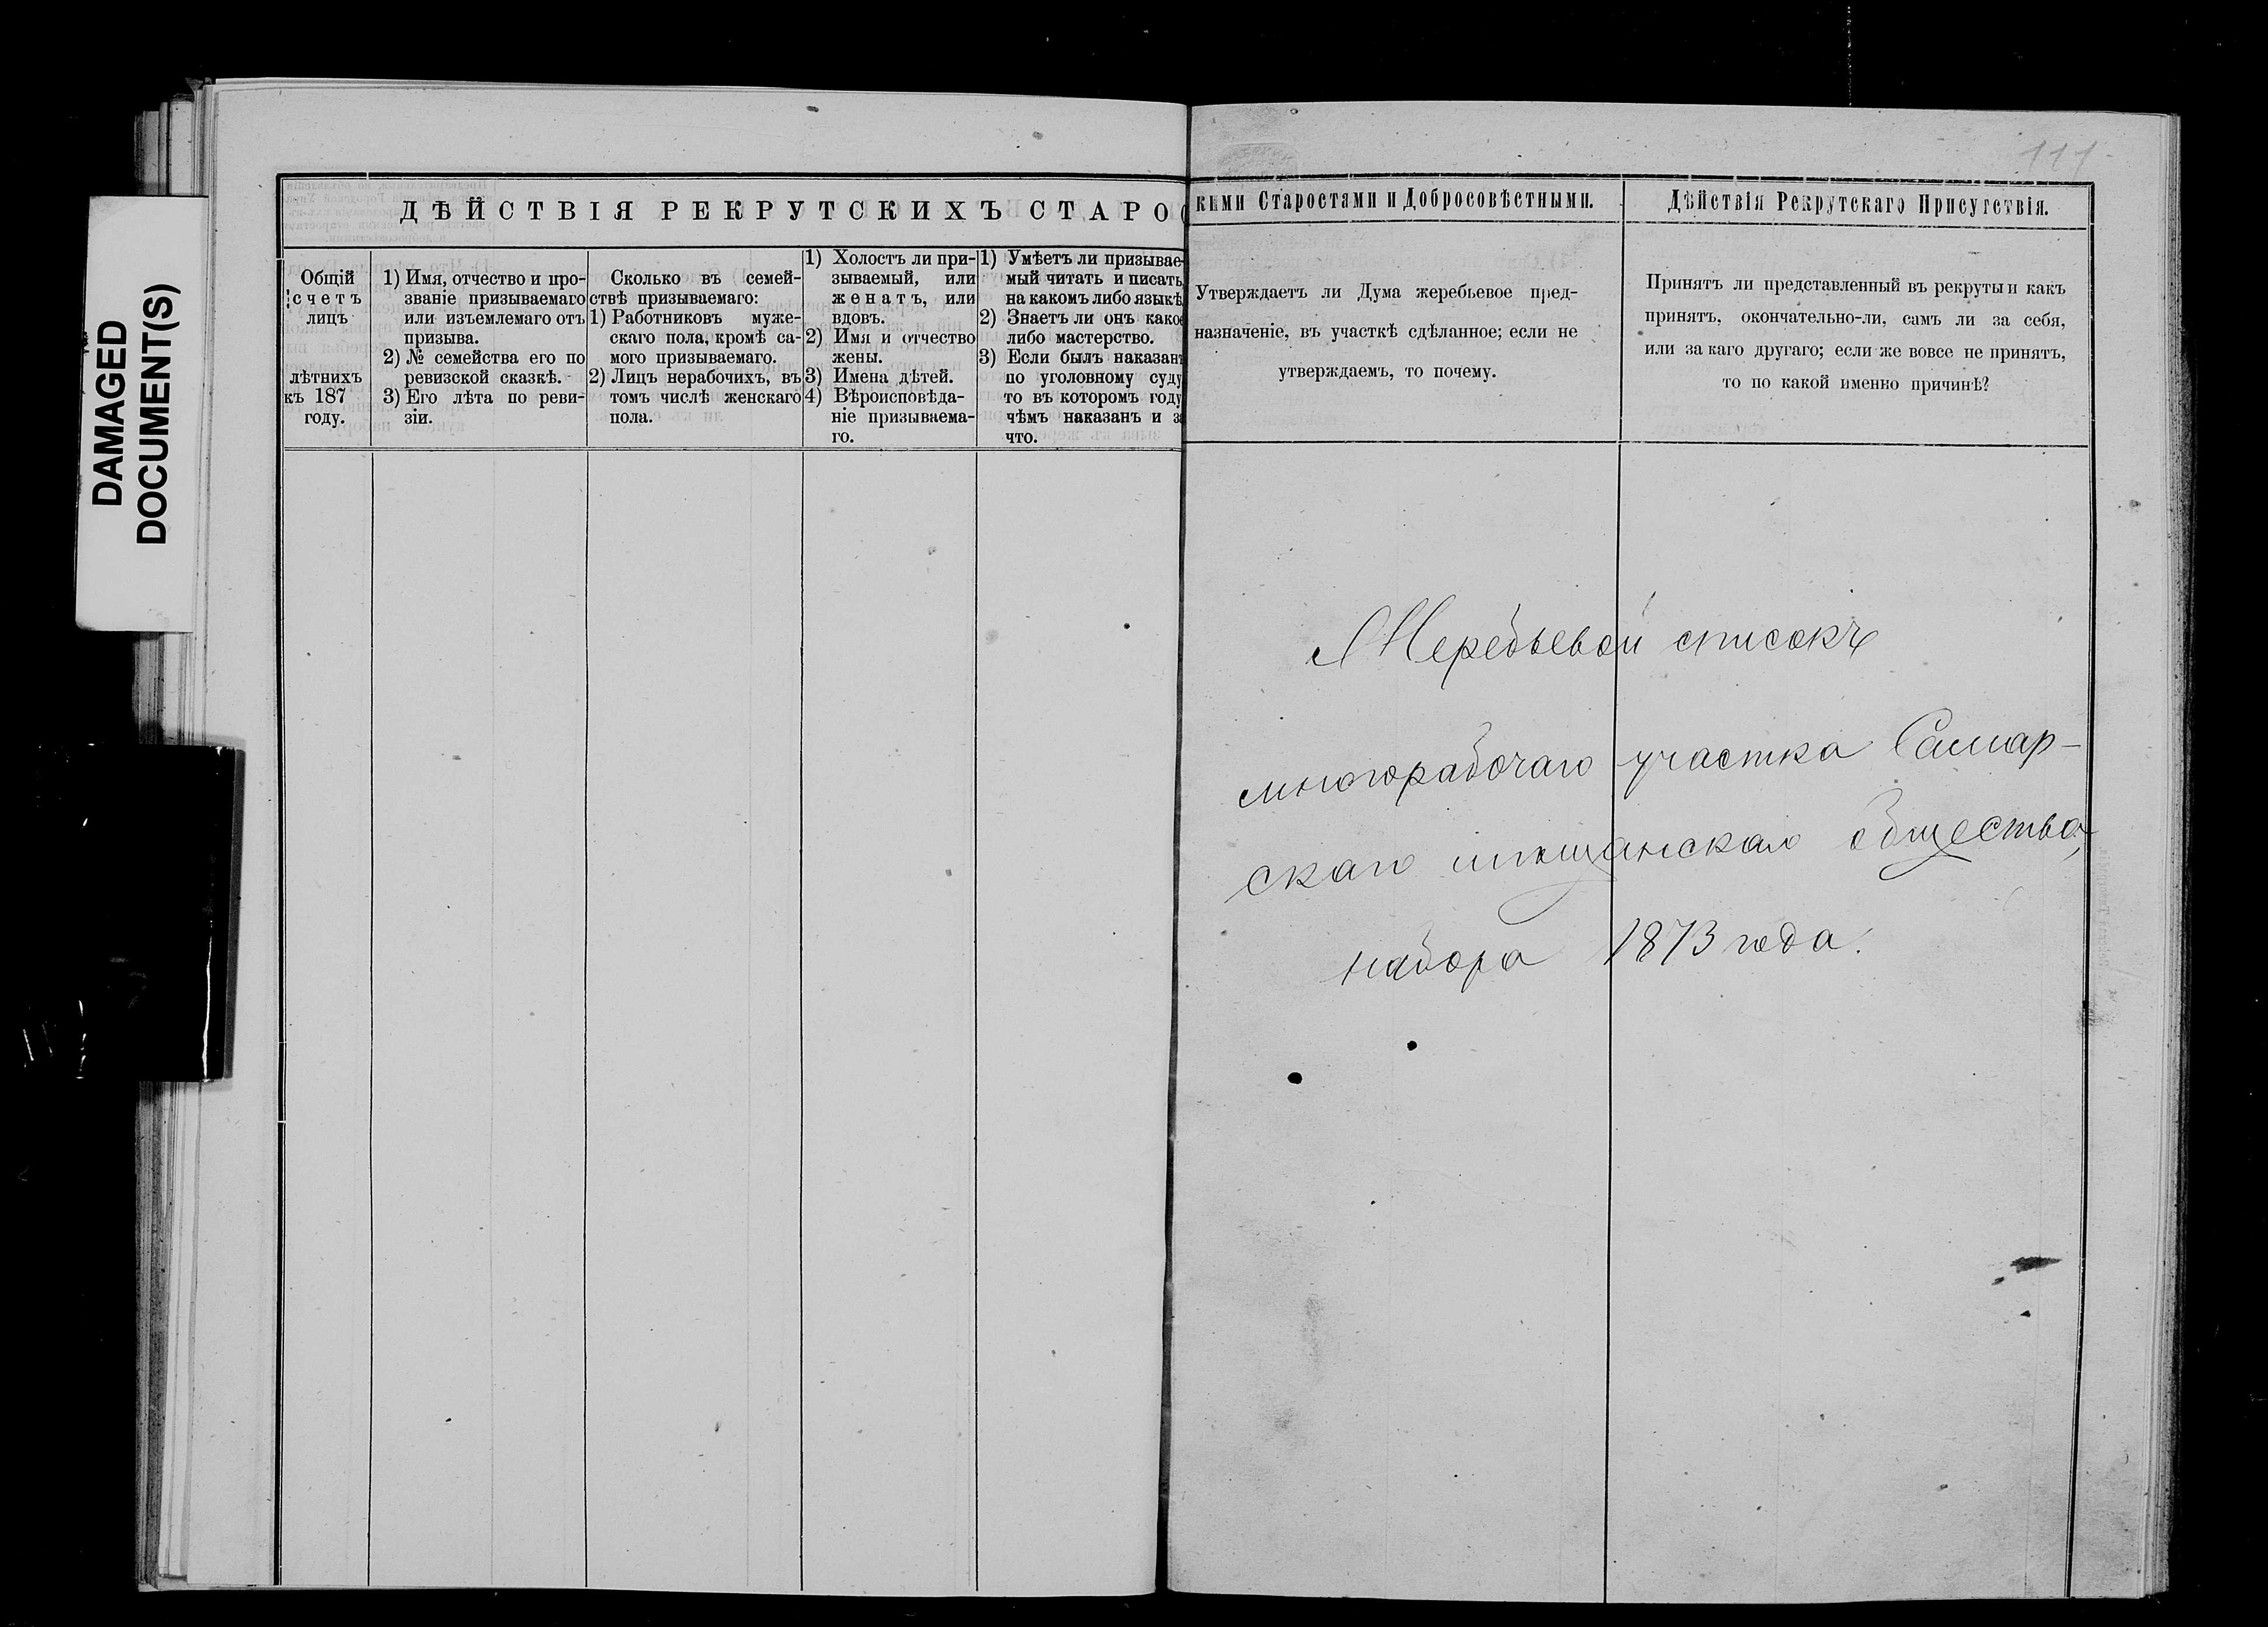 DAMAGED
DOCUMENT(S)
ДѢЙСТВІЯ РЕКРУТСКИХЪ СТАРО
Общій
счетъ
лицъ
лѣтнихъ
къ 187
году.
1) Имя, отчество и про-
званіе призываемаго
или изъемлемаго отъ
призыва.
2) № семейства его по
ревизской сказкѣ.
3) Его лѣта по реви-
зіи.
Сколько въ семей-
ствѣ призываемаго:
1) Работниковъ муже-
скаго пола, кромѣ са-
мого призываемаго.
2) Лицъ нерабочихъ, въ
томъ числѣ женскаго
пола.
1) Холостъ ли при-
зываемый, или
женатъ, или
вдовъ.
2) Имя и отчество
жены.
3) Имена дѣтей.
4) Вѣроисповѣда-
ніе призываема-
го.
1) Умѣетъ ли призывае-
мый читать и писать
на какомъ либо языкѣ
2) Знаетъ ли онъ какое
либо мастерство.
3) Если былъ наказанъ
по уголовному суду
то въ которомъ году
чѣмъ наказанъ и за
что.
111
кими Старостами и Добросовѣстными.
Дѣйствія Рекрутскаго Присутствія.
Утверждаетъ ли Дума жеребьевое пред-
назначеніе, въ участкѣ сдѣланное; если не
утверждаемъ, то почему.
Принятъ ли представленный въ рекруты и какъ
принятъ, окончательно-ли, самъ ли за себя,
или за каго другаго; если же вовсе не принятъ,
то по какой именно причинѣ?
Жеребьевой списокъ
многорабочаго участка Самар-
скаго мѣщанскаго общества,
набора 1873 года.